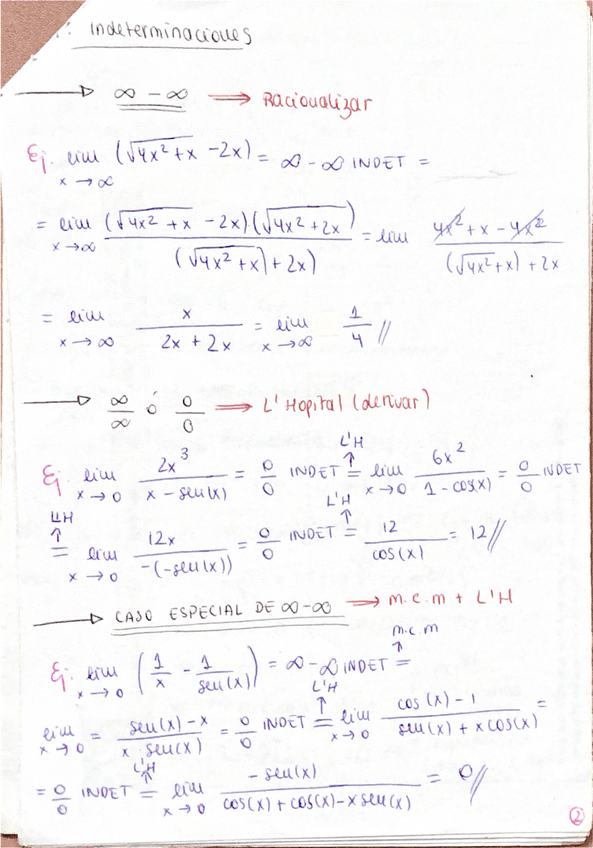 : Indeterminaciones
→ ∞ - ∞ → Racionalizar
Ej. lim x→∞ (√4x²+x - 2x) = ∞ - ∞ INDET =
= lim x→∞ (√4x²+x - 2x)(√4x²+2x) / (√4x²+x) + 2x) = lim 4x² + x - 4x² / (√4x²+x) + 2x
= lim x→∞ x / 2x + 2x = lim x→∞ 1/4 //
→ ∞/∞ ó 0/0 → L' Hopital (derivar)
Ej. lim x→0 2x³ / x - sen(x) = 0/0 INDET L'H ↑ = lim x→0 6x² / 1 - cos(x) = 0/0 INDET
L'H ↑ = lim x→0 12x / -(-sen(x)) = 0/0 INDET L'H ↑ = 12 / cos(x) = 12 //
→ CASO ESPECIAL DE ∞-∞ → m.c.m + L'H
Ej. lim x→0 (1/x - 1/sen(x)) = ∞ - ∞ INDET m.c.m ↑ =
lim x→0 = sen(x) - x / x · sen(x) = 0/0 INDET L'H ↑ = lim x→0 cos(x) - 1 / sen(x) + x cos(x) =
= 0/0 INDET L'H ↑ = lim x→0 - sen(x) / cos(x) + cos(x) - x sen(x) = 0 //
2